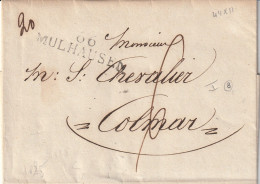 20
66
MULHAUSEN
Monsieur
m: S: Chevalier
Colmar